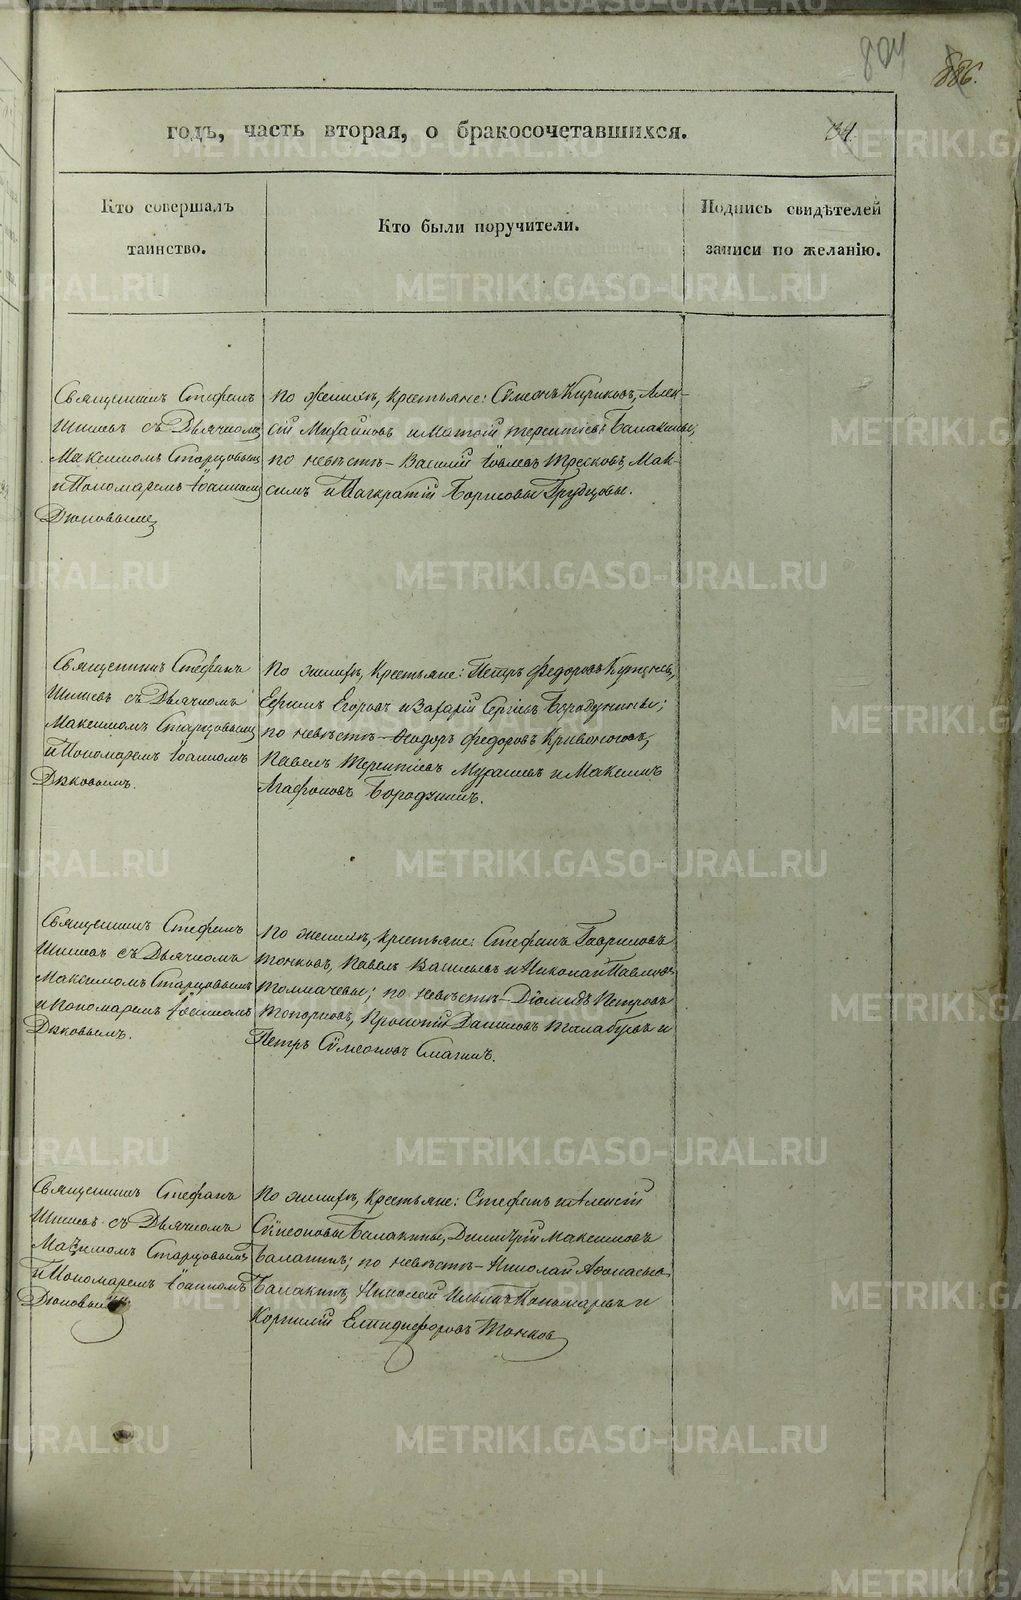 годъ, часть вторая, о бракосочетавшихся.
34.
Кто совершалъ
таинство.
Кто были поручители.
Подпись свидѣтелей
записи по желанію.
Священникъ Стефанъ
Шишевъ съ Дьячкомъ
Максимомъ Старцовымъ
и Пономаремъ Іоанномъ
По женихѣ, крестьяне: Сѵмеонъ Кириковъ, Алек-
сій Михайловъ и Матѳій Терентіевъ Балакины;
по невѣстѣ – Василій Іовлевъ Трясковъ, Мак-
симъ и Панкратій Борисовы Грудцовы.
Священникъ Стефанъ
Шишевъ съ Дьячкомъ
Максимомъ Старцовымъ
и Пономаремъ Іоанномъ
По женихѣ, крестьяне: Петръ Федоровъ
Ефимъ Егоровъ и Захарій Сергіевъ Бородулины;
по невѣстѣ – Ѳеодоръ Федоровъ Кривоноговъ,
Павелъ Терентіевъ и Максимъ
Агафоновъ Бородулинъ.
Священникъ Стефанъ
Шишевъ съ Дьячкомъ
Максимомъ Старцовымъ
и Пономаремъ Іоанномъ
По женихѣ, крестьяне: Стефанъ Гавриловъ
Тонковъ, Павелъ Васильевъ и Николай Павловъ
Толмачевы; по невѣстѣ – Діомидъ Петровъ
Топорковъ, Даниловъ и
Петръ Сѵмеоновъ Смагинъ.
Священникъ Стефанъ
Шишевъ съ Дьячкомъ
Максимомъ Старцовымъ
и Пономаремъ Іоанномъ
По женихѣ, крестьяне: Стефанъ и Алексій
Сѵмеоновы Балакины, Димитрій Максимовъ
Балакинъ; по невѣстѣ – Николай
Балакинъ, Николай Ильинъ Пономаревъ и
Корнилій Елпидифоровъ Тонковъ
METRIKI.GASO-URAL.RU